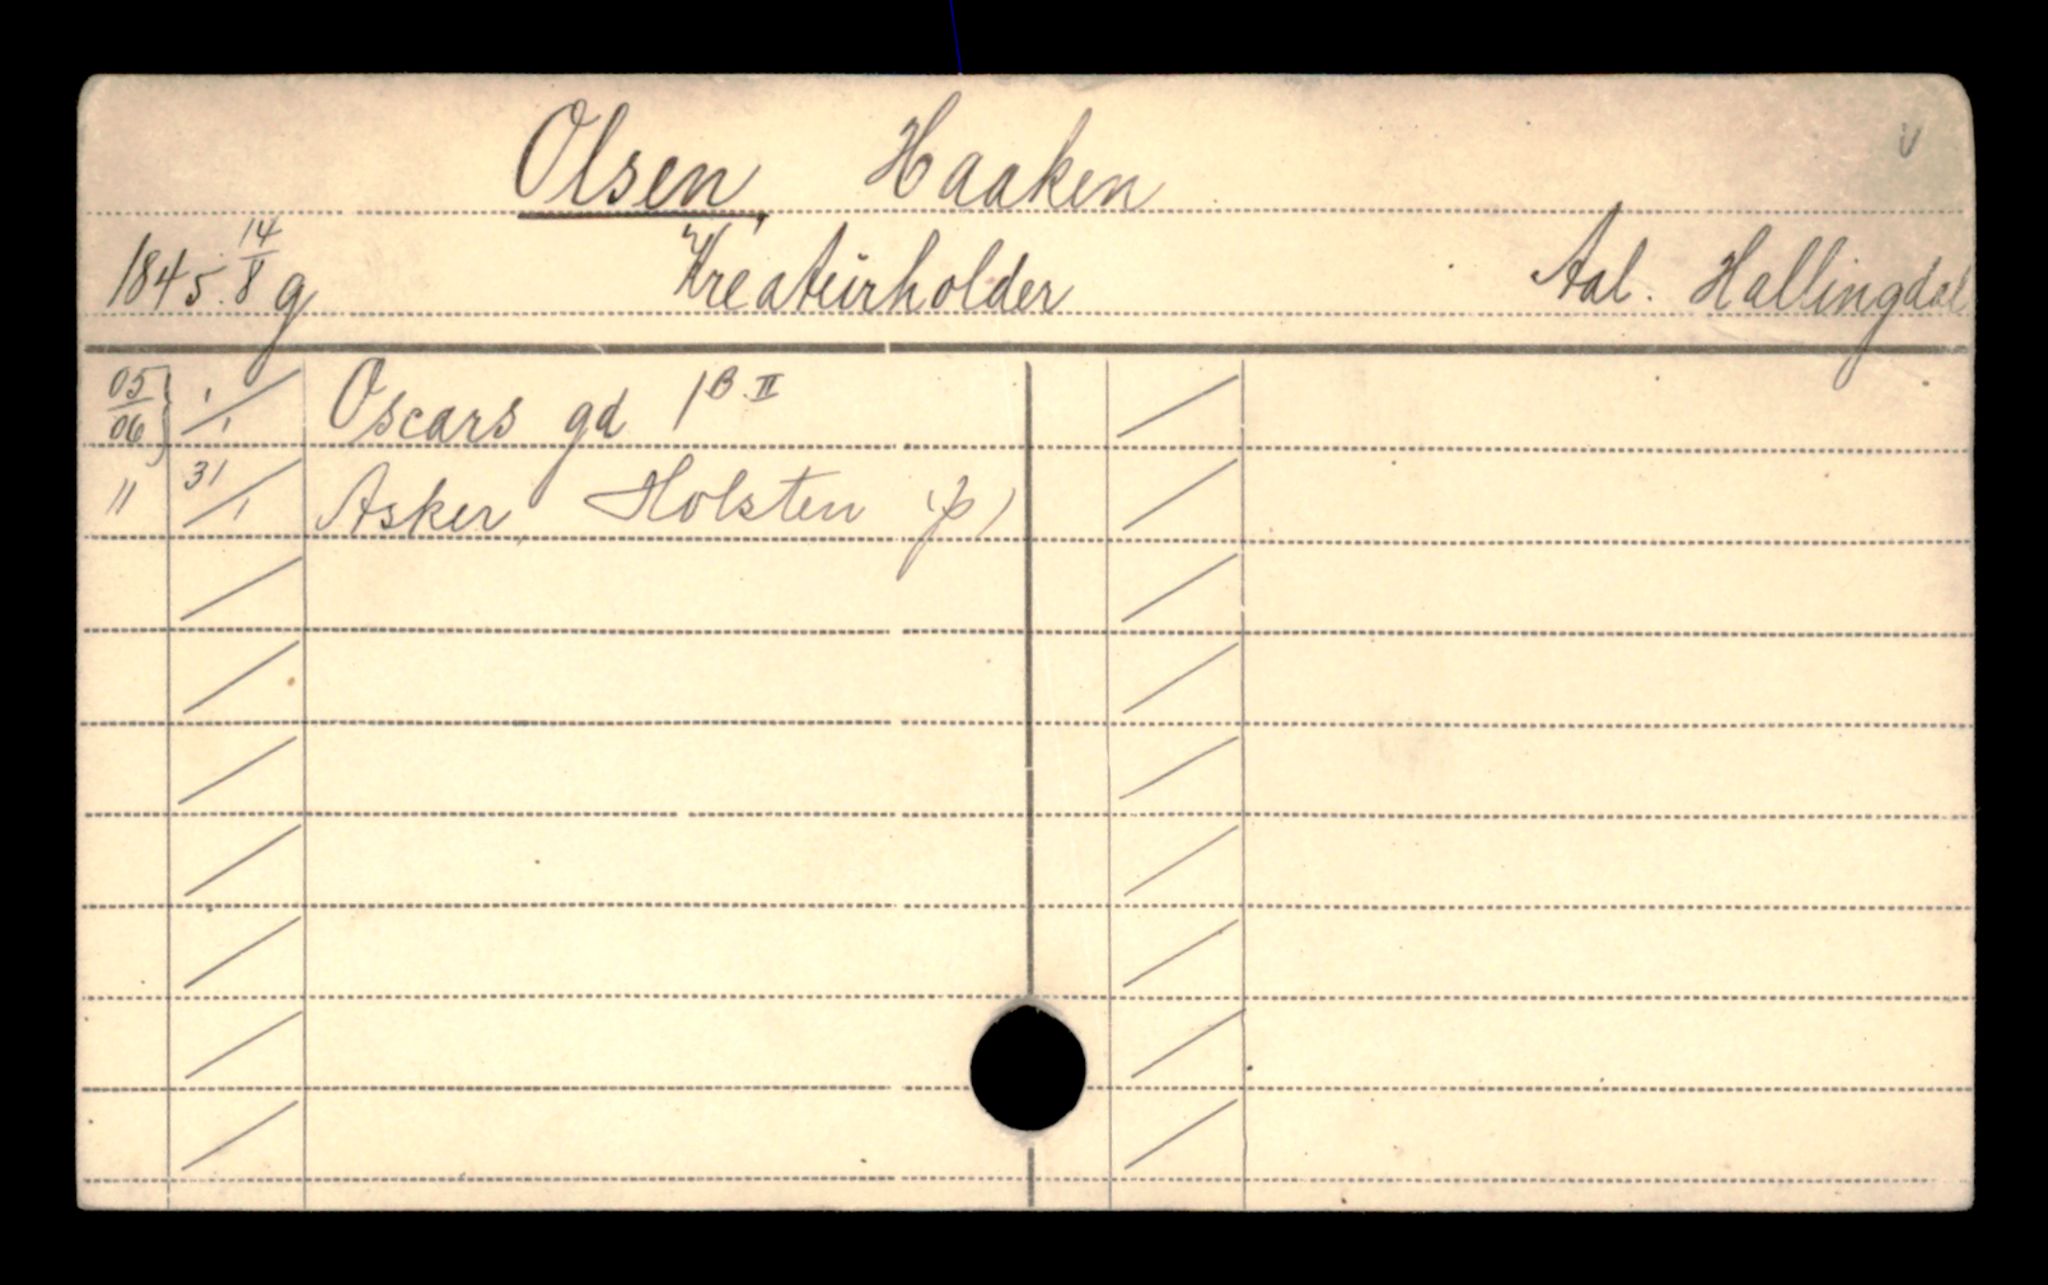 Olsen, Haaken
1845. 14/8 g Kreaturholder Aal. Hallingdal
05/06 } 1/1 Oscars gd 1 B. II
" 31/1 Asker, Holsten (p)